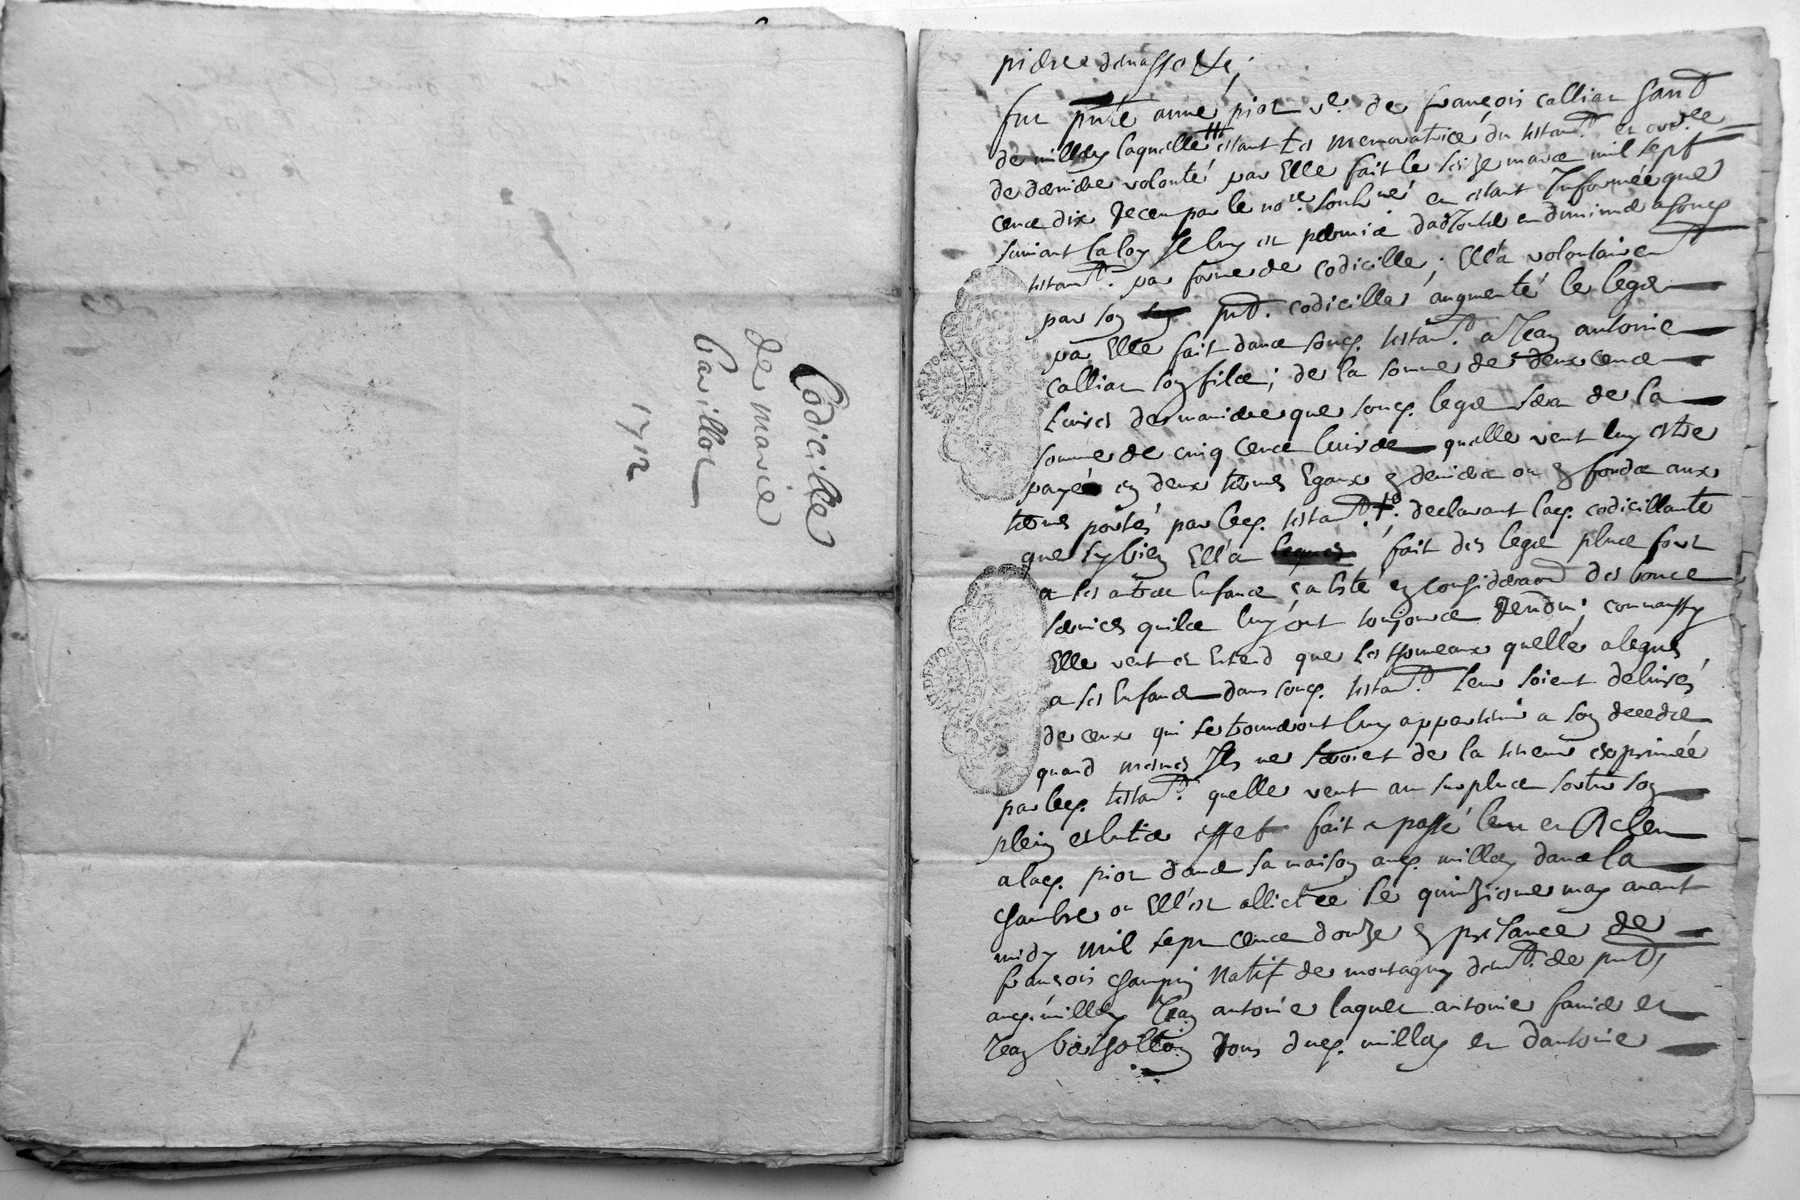 Codicille
de marie
Cavillot
1712
fut pnte anne piot ve. de françois calliat hant
de millay laquelle estant les memoratrice du testamt. et ordre
de derniere volonté par Elle fait le seize mars mil sept
cens dix Receu par le nore. soubné en estant Informée que
suivant la loy Il luy est permis dadiouter ou diminuer a soncy.
testamt. par forme de codicille; Ell'a volontairemt
par soy pnt. codicille augmenté le legs
par Elle fait dans soncy. testamt. a Jean antoine
calliat soy fils; de la somme de deux cens
Livres de maniere que soncy. legs sera de la
somme de cinq cens livres quelle veut luy estre
payé ey deux termes Egaux ey deniers ou ey fonds aux
termes portés par lecy. testamt. declarant lacy. codicillante
que sy biey Ell'a fait des legs plus fort
a ses autres Enfans, ça esté ey consideraon des bons
services quils luy ont toujours Rendu; comaussy
Elle veut et Entend que les Joyeaux quelle a legués
a ses Enfans dans soncy. testamt. leur soient delivrés
de ceux qui se trouveront luy appartenir a soy decedz
quand mesmes Ils ne seroient de la teneur exprimée
par lecy. testamt. quelle veut au surplus sortir soy
pleiy et entier effet fait et passé leu et Releu
a lacy. piot dans sa maisoy aucy. millay dans la
chambre ou Ell'est allictée le quinziesme may avant
midy mil sept cens douze ey presance de
françois champiy Natif de montagny demt. de pnt
aucy. millay Jean antoine laquet antoine favier et
Jean berthollory Tous ducy. millay et dantoine